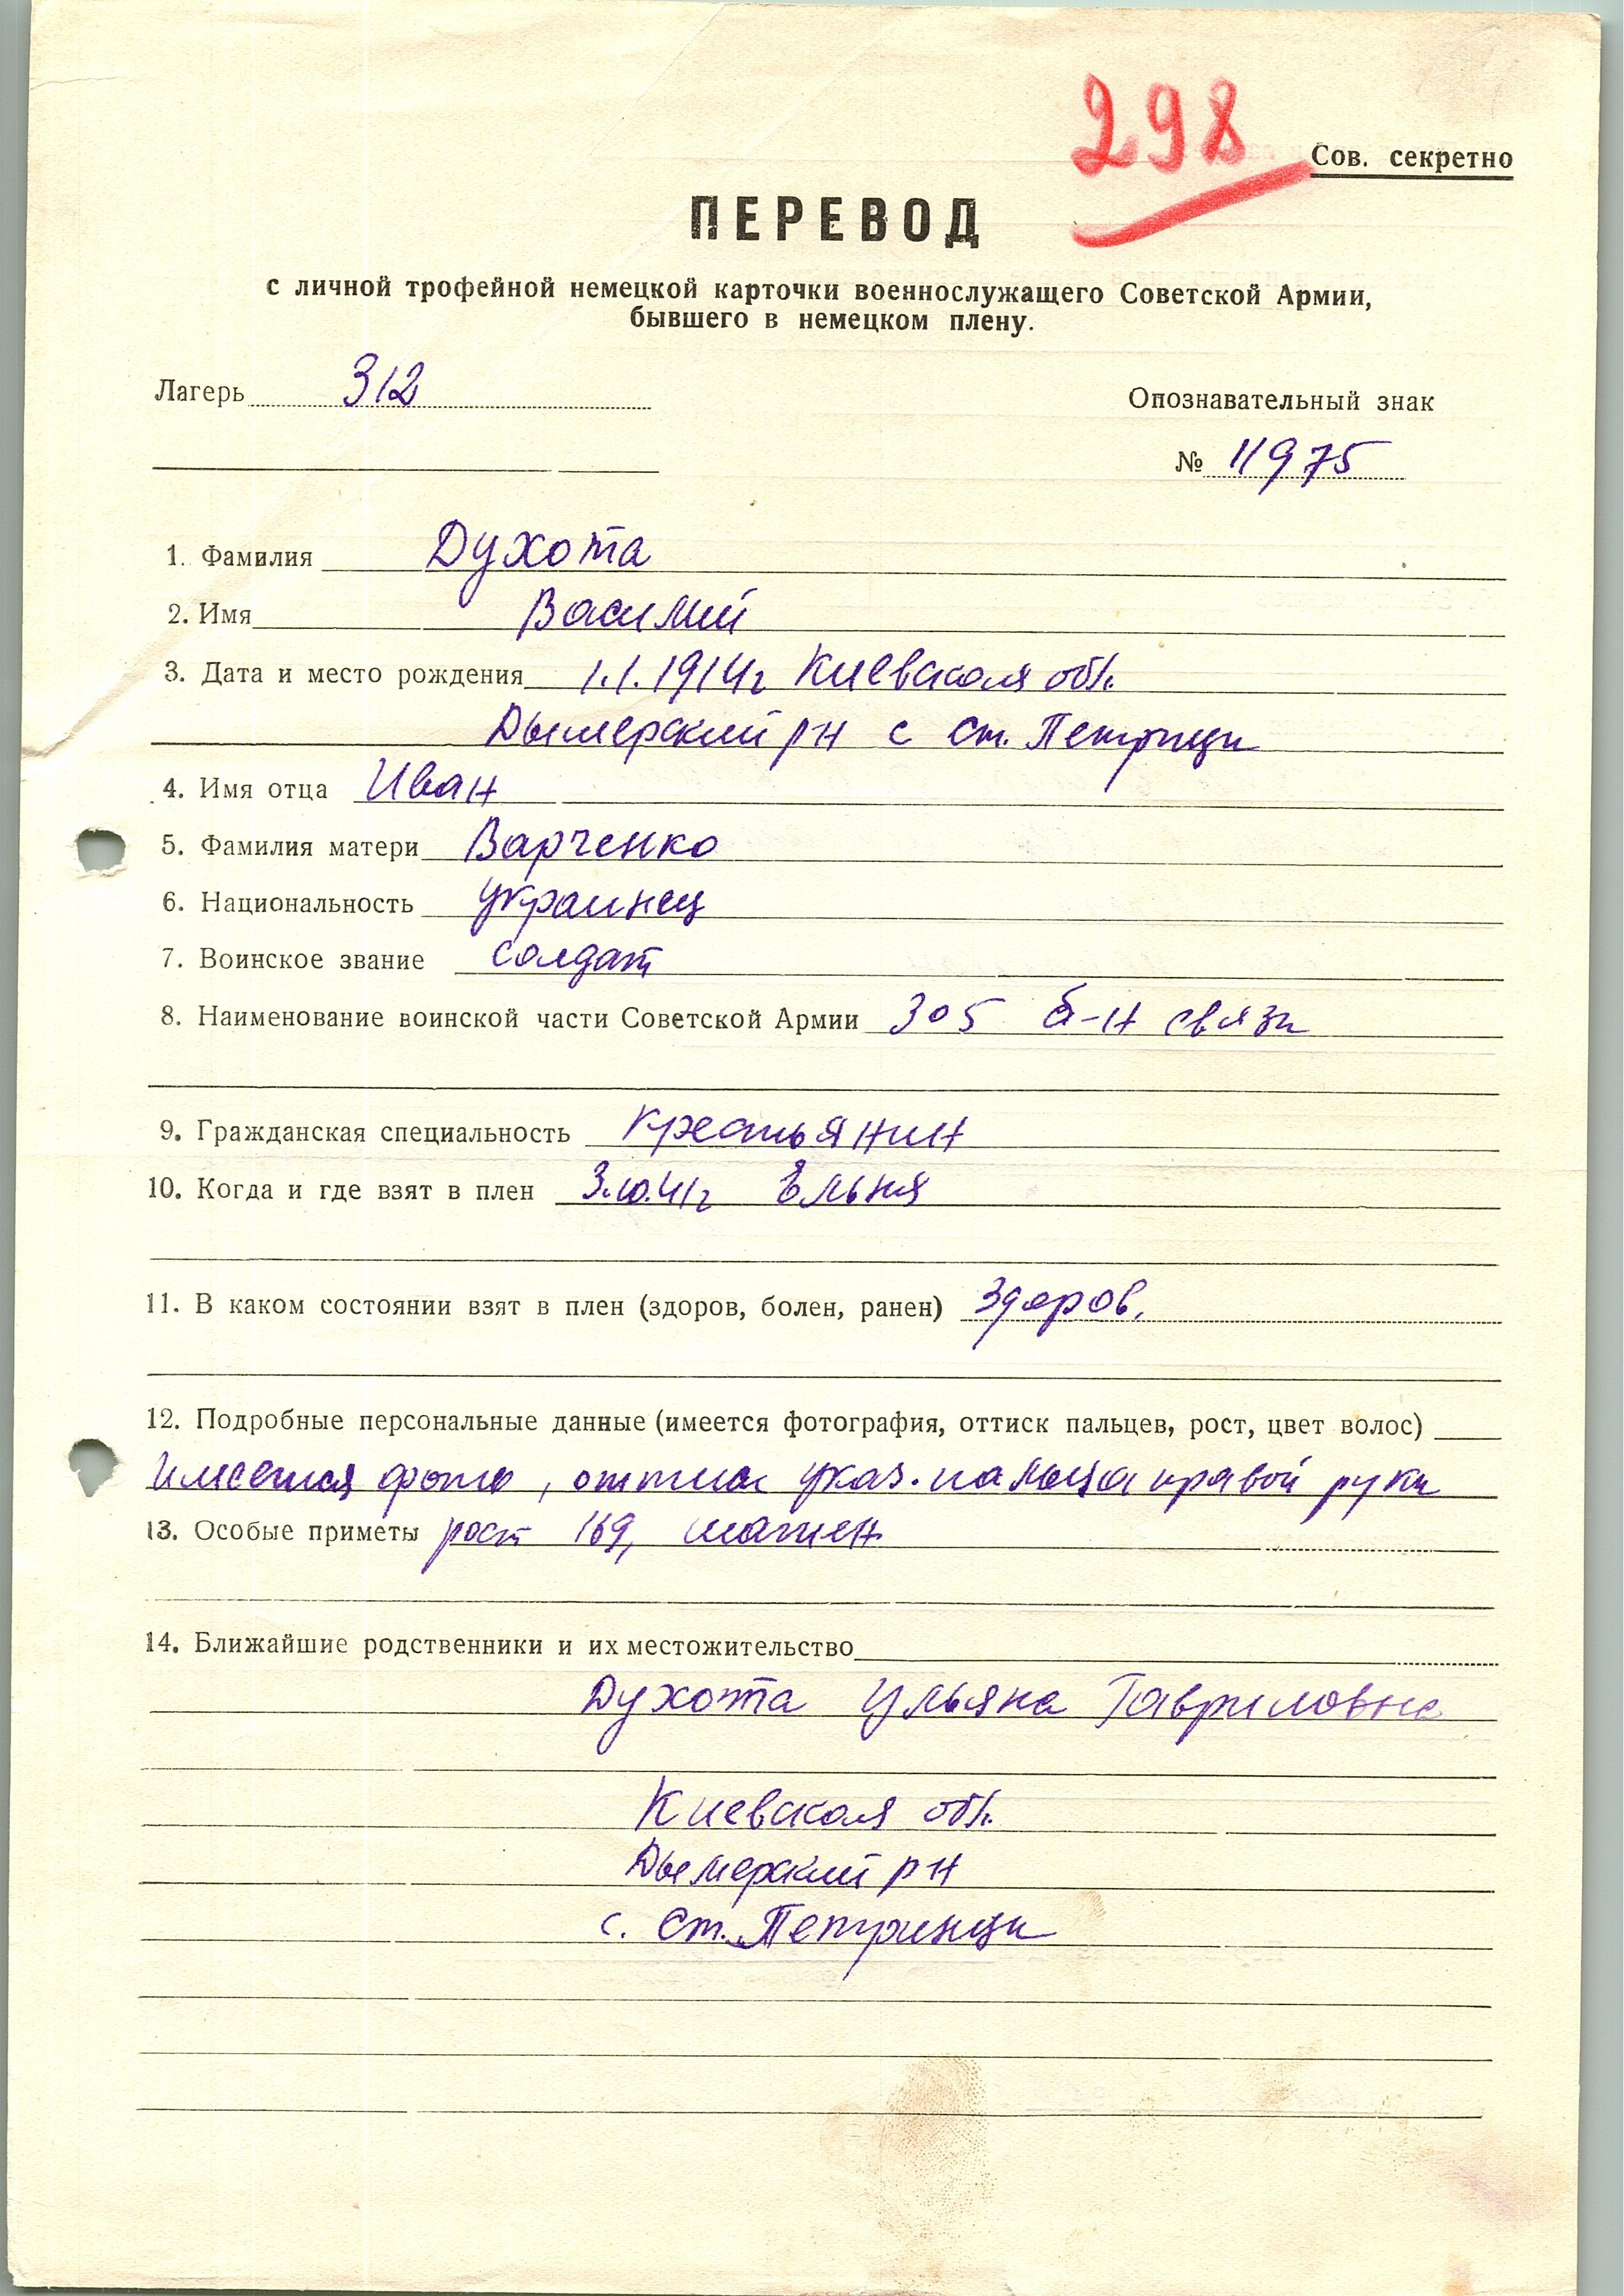 298
Сов. секретно
ПЕРЕВОД
с личной трофейной немецкой карточки военнослужащего Советской Армии,
бывшего в немецком плену.
Лагерь 312
Опознавательный знак
№ 11975
1. Фамилия Духота
2. Имя Василий
3. Дата и место рождения 1.1.1914г Киевская обл.
Дымерский рн с Ст. Петрици
4. Имя отца Иван
5. Фамилия матери Варченко
6. Национальность украинец
7. Воинское звание солдат
8. Наименование воинской части Советской Армии 305 б-н связи
9. Гражданская специальность крестьянин
10. Когда и где взят в плен 3.10.41г Ельня
11. В каком состоянии взят в плен (здоров, болен, ранен) здоров.
12. Подробные персональные данные (имеется фотография, оттиск пальцев, рост, цвет волос)
имеется фото, оттиск указ. пальца правой руки
13. Особые приметы рост 169, шатен
14. Ближайшие родственники и их местожительство
Духота Ульяна Гавриловна
Киевская обл.
Дымерский рн
с. Ст. Петринци